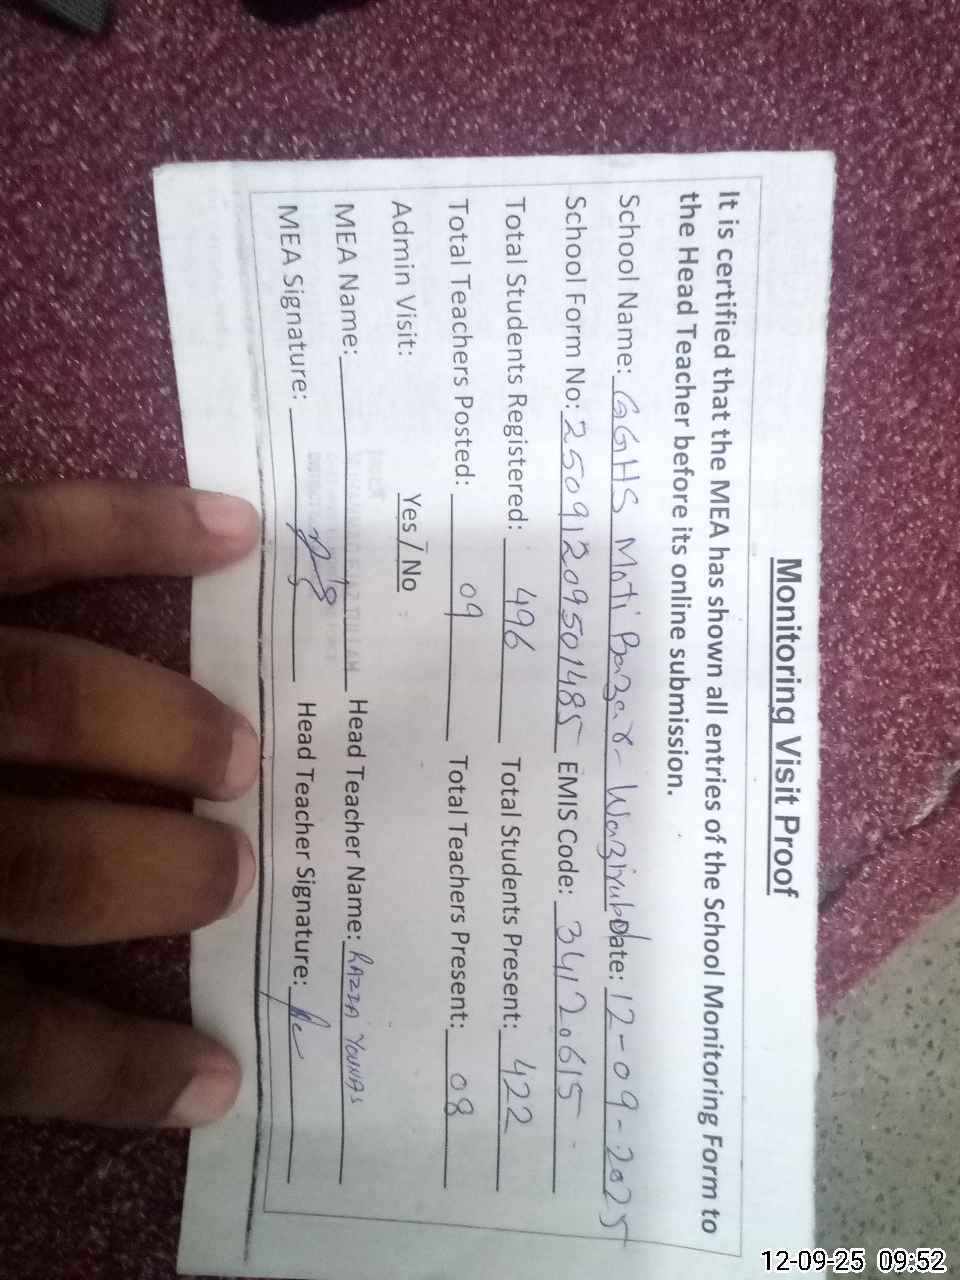 Monitoring Visit Proof
It is certified that the MEA has shown all entries of the School Monitoring Form to
the Head Teacher before its online submission.
School Name: GGHS Moti Bazar Wazirabad Date: 12-09-2025
School Form No: 25091209501485 EMIS Code: 34120615
Total Students Registered: 496 Total Students Present: 422
Total Teachers Posted: 09 Total Teachers Present: 08
Admin Visit: Yes / No
MEA Name: Head Teacher Name: RAZIA YOUNAS
MEA Signature: Head Teacher Signature:
12-09-25 09:52